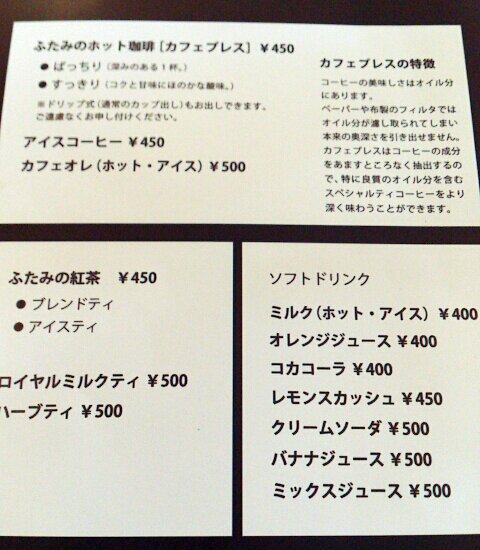 ふたみのホット珈琲［カフェプレス］￥450
● ばっちり（深みのある1杯。）
● すっきり（コクと甘味にほのかな酸味。）
※ドリップ式（通常のカップ出し）もお出しできます。
ご遠慮なくお申し付けください。
アイスコーヒー ￥450
カフェオレ（ホット・アイス）￥500
カフェプレスの特徴
コーヒーの美味しさはオイル分
にあります。
ペーパーや布製のフィルタでは
オイル分が濾し取られてしまい
本来の奥深さを引き出せません。
カフェプレスはコーヒーの成分
をあますところなく抽出するの
で、特に良質のオイル分を含む
スペシャルティコーヒーをより
深く味わうことができます。
ふたみの紅茶 ￥450
● ブレンドティ
● アイスティ
ロイヤルミルクティ ￥500
ハーブティ ￥500
ソフトドリンク
ミルク（ホット・アイス）￥400
オレンジジュース ￥400
コカコーラ ￥400
レモンスカッシュ ￥450
クリームソーダ ￥500
バナナジュース ￥500
ミックスジュース ￥500